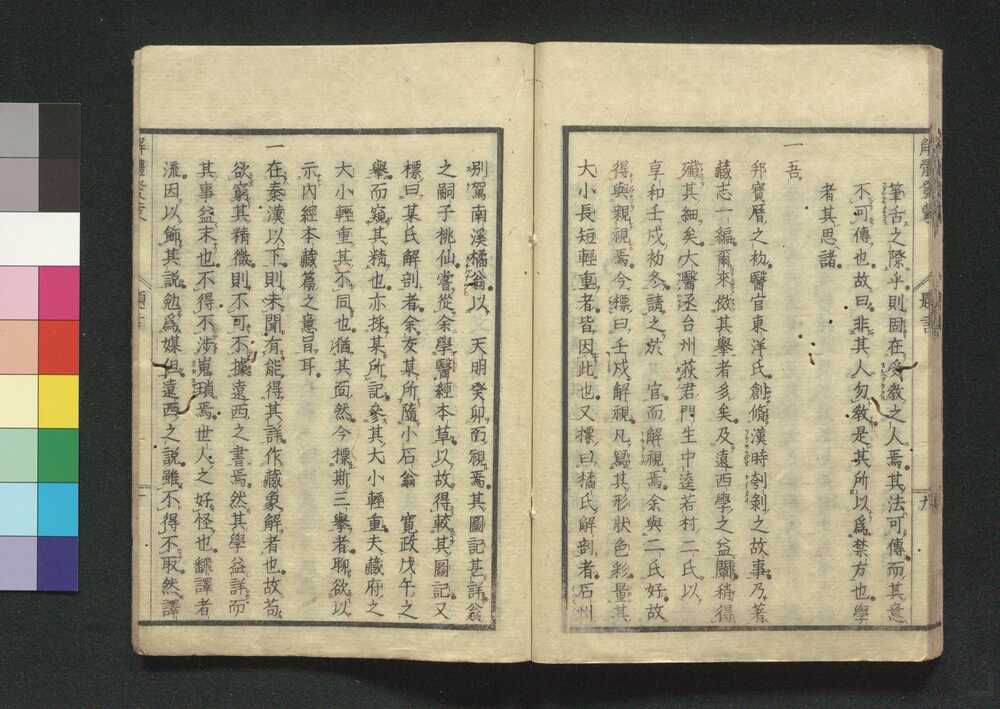 筆舌之際乎則固在受教之人焉其法可傳而其意
不可傳也故曰非其人勿教是其所以爲禁方也學
者其思諸
一吾
邦寶曆之初醫官東洋氏創脩漢時刳剝之故事乃著
藏志一編爾來倣其擧者多矣及遠西學之益闢稍得
殲其細矣大醫丞台州荻君門生中逵若村二氏以
享和壬戍初冬請之於　官而解視焉余與二氏好故
得與親視焉今標曰壬戍解視凡驗其形狀色彩量其
大小長短輕重者皆因此也又標曰橘氏解剖者石州
別駕南溪橘翁以　天明癸卯而視焉其圖記甚詳翁
之嗣子桃仙嘗從余學醫經本草以故得較其圖記又
標曰某氏解剖者余友某所隨小石翁　寬政戊午之
擧而窺其精也亦採某所記參其大小輕重夫藏府之
大小輕重其不同也猶其面然今標斯三擧者聊欲以
示内經本藏篇之意旨耳
一在秦漢以下則未聞有能得其詳作藏象解者也故苟
欲窮其精微則不可不據遠西之書焉然其學益詳而
其事益末也不得不涉嵬瑣焉世人之好怪也飜譯者
流因以飾其說勉爲媒但遠西之說雖不得不取然譯
解體發蒙
題言